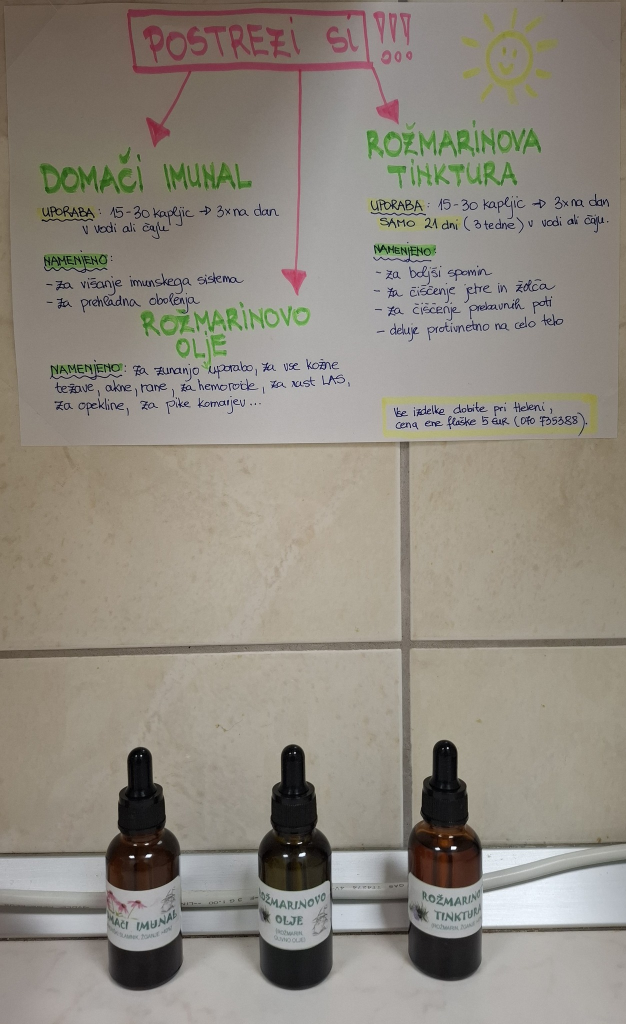 POSTREZI SI !!!
DOMAČI IMUNAL
UPORABA: 15-30 kapljic → 3x na dan
v vodi ali čaju
NAMENJENO:
- za višanje imunskega sistema
- za prehladna obolenja
ROŽMARINOVA
TINKTURA
UPORABA: 15-30 kapljic → 3x na dan
SAMO 21 dni (3 tedne) v vodi ali čaju.
NAMENJENO:
- za boljši spomin
- za čiščenje jetre in žolča
- za čiščenje prebavnih poti
- deluje protivnetno na celo telo
ROŽMARINOVO
OLJE
NAMENJENO: za zunanjo uporabo, za vse kožne
težave, akne, rane, za hemoroide, za rast LAS,
za opekline, za pike komarjev...
Vse izdelke dobite pri Heleni,
cena ene flaške 5 EUR (070 735388).
IMUNAL
ROŽMARINOVO
OLJE
(ROŽMARIN,
OLIVNO OLJE)
ROŽMARINO
TINKTURA